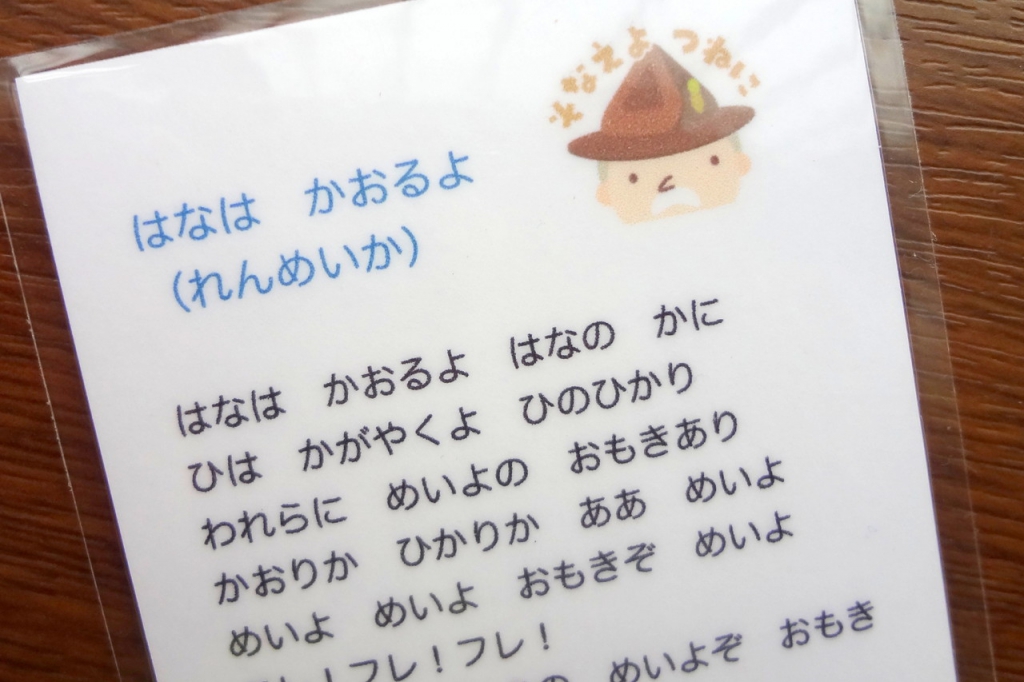 そなえよ つねに
はなは かおるよ
(れんめいか)
はなは かおるよ はなの かに
ひは かがやくよ ひのひかり
われらに めいよの おもきあり
かおりか ひかりか ああ めいよ
めいよ めいよ おもきぞ めいよ
！フレ！フレ！
めいよぞ おもき